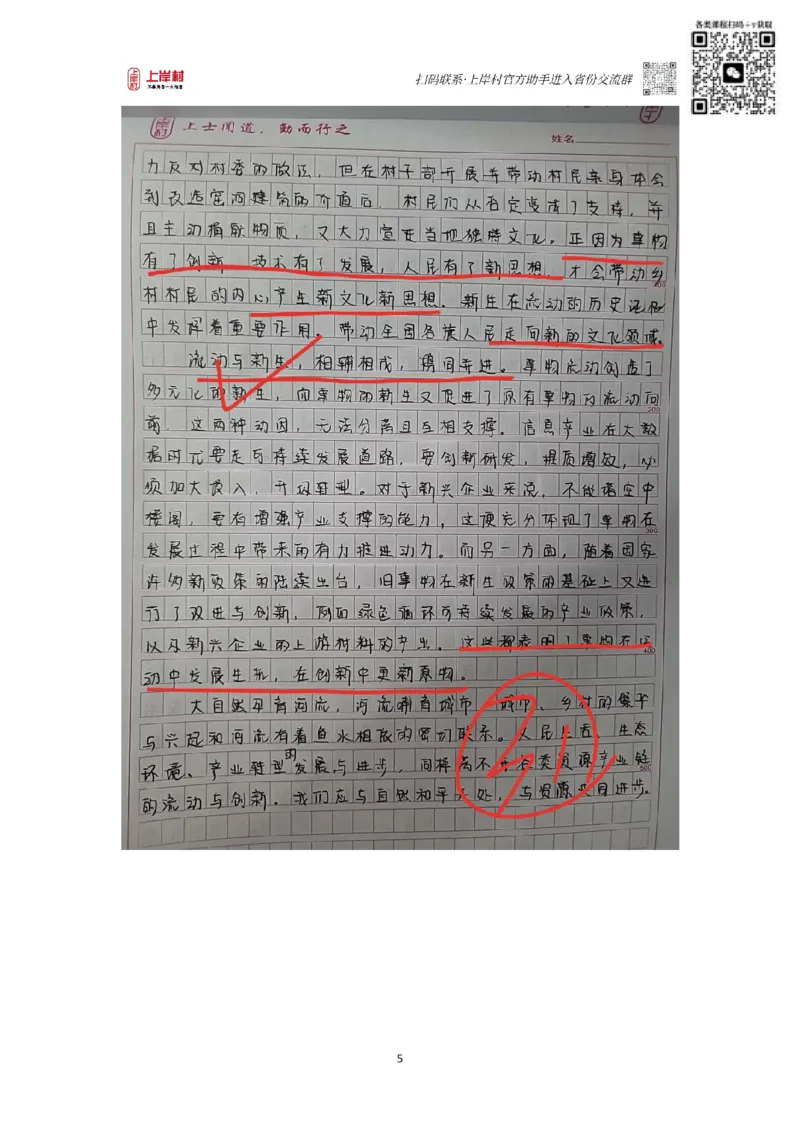 各类课程扫码+v获取
上岸村
扫码联系·上岸村官方助手进入省份交流群
上士闻道,勤而行之
姓名
力反对村委的做法,但在村干部开展并带动村民亲身体会
到改造窑洞建筑的价值后,村民们从否定变成了支持,并
且主动捐献物质,又大力宣传当地独特文化。正因为事物
有了创新,技术有了发展,人民有了新思想,才会带动乡
村村民的内心产生新文化新思想。新生在流动的历史记忆
中发挥着重要作用。带动全国各族人民走向新的文化领域。
流动与新生,相辅相成,携同并进。事物流动创造了
多元化的新生,而事物的新生又促进了原有事物的流动向
200
前,这两种动因,无法分离且互相支撑。信息产业在大数
据时代要走可持续发展道路,要创新研发,提质增效,必
须加大投入,升级转型。对于新兴企业来说,不能搭空中
楼阁,要有增强产业支撑的能力,这便充分体现了事物在
300
发展过程中带来的有力推进动力。而另一方面,随着国家
许多新政策的陆续出台,旧事物在新生政策的基础上又进
行了改进与创新,例如绿色循环可持续发展的产业政策,
以及新兴企业的上游材料的产出。这些都表明了事物在运
400
动中发展生机,在创新中更新原物。
大自然孕育河流,河流哺育城市,城市、乡村的繁华
与兴起和河流有着鱼水相融的密切联系。人民生活、生态
环境、产业转型的发展与进步,同样离不开各类资源产业链
500
的流动与创新。我们应与自然和平共处,与资源共同进步。
5